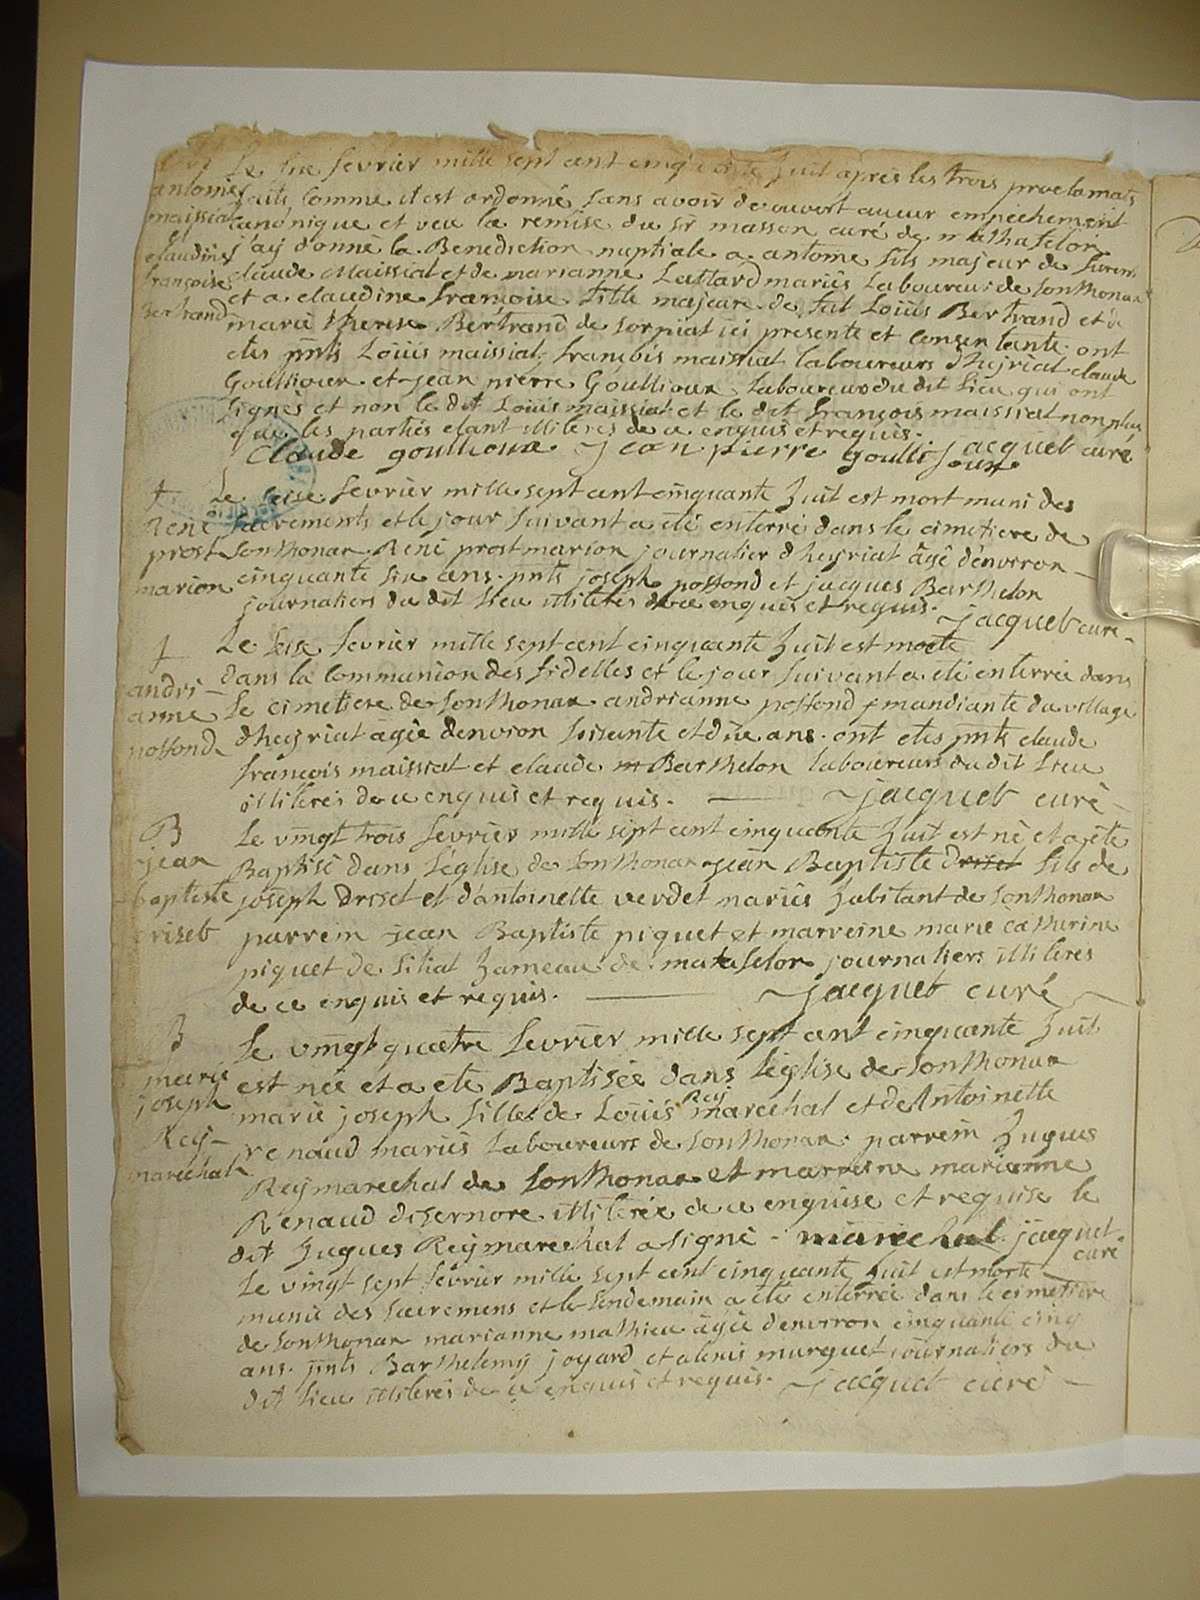 fevrier mille sept cent cinquante huit apres les trois proclamats
antoine faits comme il est ordonné sans avoir decouvert aucun empechement
maissiat canonique et veu la remise du sr masson curé de
j'ay donné la Benediction nuptiale a antoine fils majeur de
claudine claude Maissiat et de marianne mariés Laboureur de Sonthonax
francoise et a claudine françoise fille majeure de fut Loüis Bertrand et de
Bertrand marie therese Bertrand de sorpiat ici presente et consentante ont
etes pnts Loüis maissiat, françois maissiat laboureurs d'heyriat claude
Goullioux et jean pierre Goullioux Laboureurs du dit lieu qui ont
signés et non le dit Loüis maissiat et le dit françois maissiat non plus
que les parties etant illiteres de ce enquis et requis.
Claude goullioux jean pierre goullioux jacquet curé
+ Le seise fevrier mille sept cent cinquante huit est mort muni des
René sacrements et le jour suivant a été enterré dans le cimetiere de
prost Sonthonax René prost marion journalier d'heyriat âgé d'environ
marion cinquante six ans. pnts joseph possond et jacques Barthelon
journaliers du dit lieu illiteres de ce enquis et requis. jacquet curé
+ Le seise fevrier mille sept cent cinquante huit est morte
dans la communion des fidelles et le jour suivant a été enterrée dans
andri- le cimetiere de Sonthonax andrianne possond mandiante du village
anne d'heyriat agée d'environ soisente et dix ans. ont etes pnts claude
possond françois maissiat et claude Barthelon laboureurs du dit lieu
illiteres de ce enquis et requis. jacquet curé
B Le vingt trois fevrier mille sept cent cinquante huit est né et a eté
jean Baptisé dans l'église de Sonthonax jean Baptiste driset fils de
baptiste joseph driset et d'antoinette verdet mariés habitant de Sonthonax
driset parrein jean Baptiste piquet et marreine marie catherine
piquet de siliat hameau de matafelon journaliers illiteres
de ce enquis et requis. jacquet curé
B Le vingt quatre fevrier mille sept cent cinquante huit
marie est née et a eté Baptisée dans l'église de Sonthonax
joseph marie joseph fille de Loüis Rey marechal et de Antoinette
Rey- renaud mariés Laboureurs de Sonthonax. parrein hugues
marechal Rey marechal de Sonthonax et marreine marianne
Renaud d'isernore illiterée de ce enquise et requise le
dit hugues Rey marechal a signé. marechal jacquet
curé
Le vingt sept fevrier mille sept cent cinquante huit est morte
munie des sacremens et le lendemain a été enterrée dans le cimetiere
de Sonthonax marianne mathieu agée d'environ cinquante cinq
ans. pnts Barthelemy joyard et alexis murguet journaliers du
dit lieu illiteres de ce enquis et requis. jacquet curé